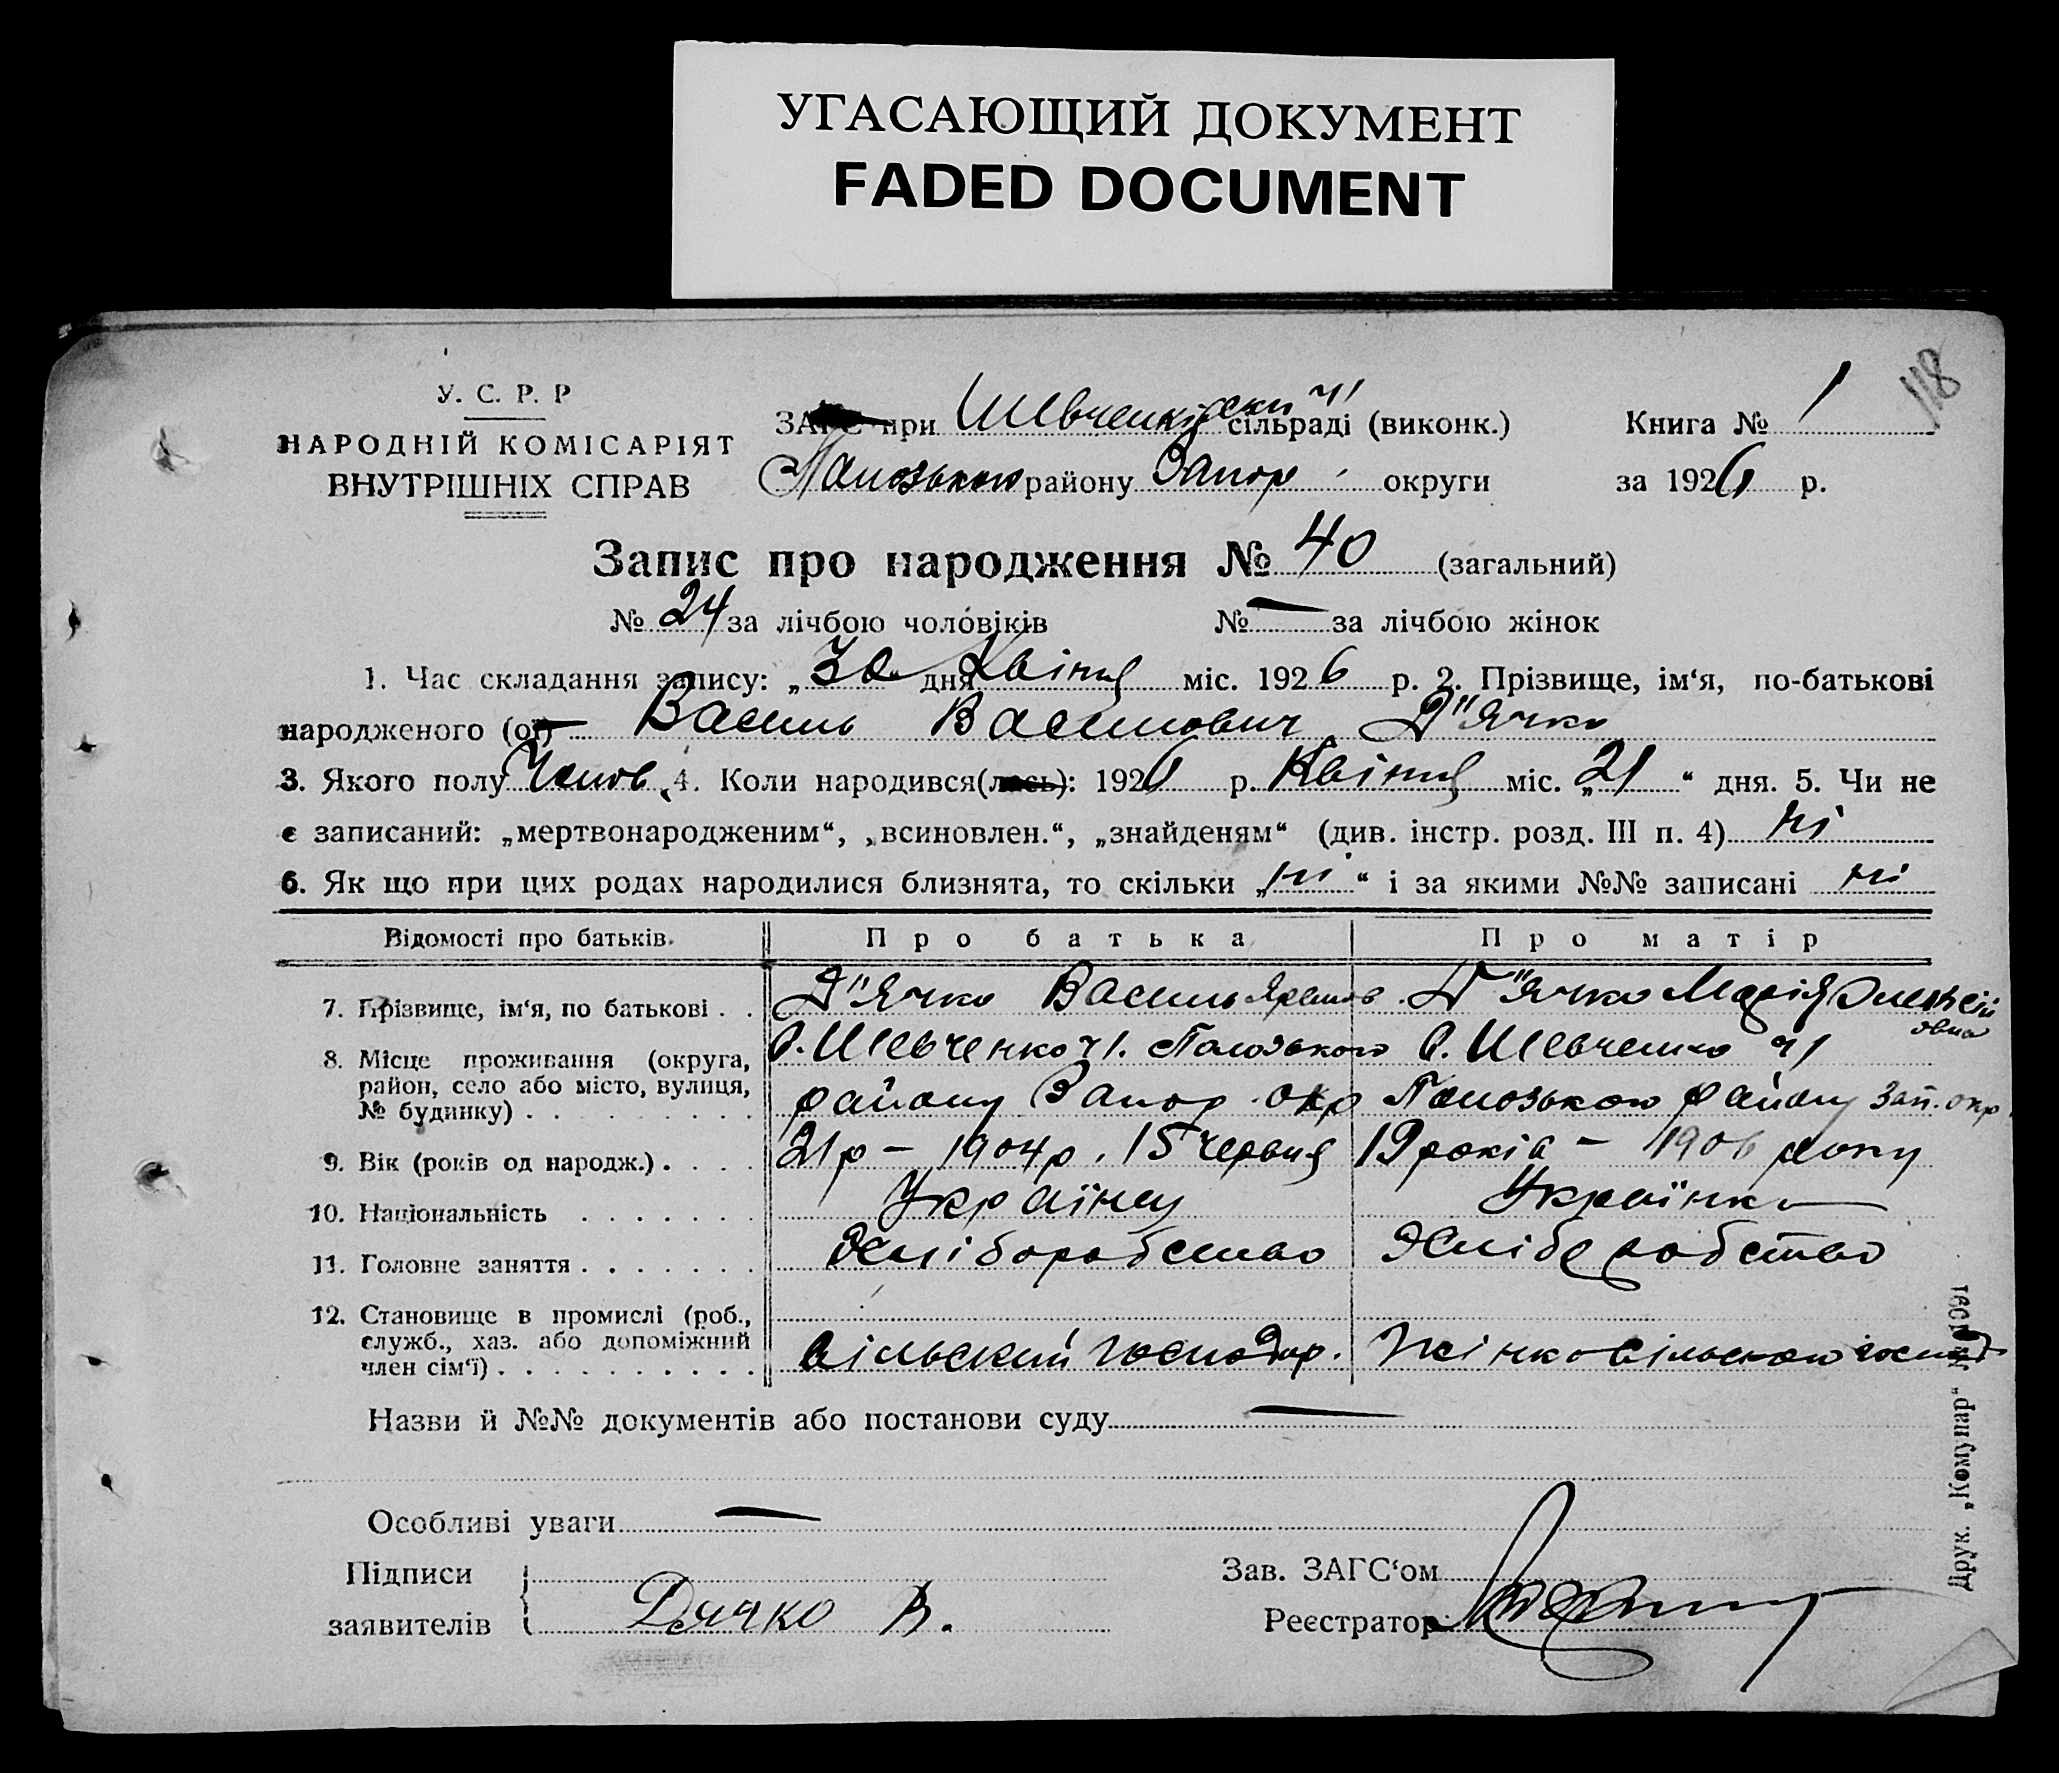 УГАСАЮЩИЙ ДОКУМЕНТ
FADED DOCUMENT
118
У. С. Р. Р
НАРОДНІЙ КОМІСАРІЯТ
ВНУТРІШНІХ СПРАВ
ЗАГС при Шевченківськи ч1 сільраді (виконк.)
Пологського району Запор округи
Книга № 1
за 1926 р.
Запис про народження № 40 (загальний)
№ 24 за лічбою чоловіків № — за лічбою жінок
1. Час складання запису: „30 дня Квітня міс. 1926 р. 2. Прізвище, ім‘я, по-батькові
народженого (ої) Василь Васильович Д"ячко
3. Якого полу Чолов. 4. Коли народився(лась): 1926 р. Квітня міс. „21“ дня. 5. Чи не
є записаний: „мертвонародженим“, „всиновлен.“, „знайденям“ (див. інстр. розд. III п. 4) ні
6. Як що при цих родах народилися близнята, то скільки „ні“ і за якими №№ записані ні
Відомості про батьків. Про батька Про матір
7. Прізвище, ім‘я, по батькові . . Д"ячко Василь Д"ячко Марія Олексіївна
8. Місце проживання (округа, район, село або місто, вулиця, № будинку) . . . . . . . . .
с. Шевченко ч1. Пологського с. Шевченко ч1
району Запор. окр Пологського району Зап. окр.
9. Вік (років од народж.) . . . . 21 р – 1904 р. 15 червня 19 років – 1906 року
10. Національність . . . . . . . Українец Українка
11. Головне заняття . . . . . . . Хліборобство Хліборобство
12. Становище в промислі (роб., служб., хаз. або допоміжний член сім‘ї) . . . . . . . . . .
сільский господар. Жінка сільского господ
Назви й №№ документів або постанови суду —
Особливі уваги —
Підписи
заявителів Дячко В.
Зав. ЗАГС‘ом
Реєстратор
Друк. „Комунар“